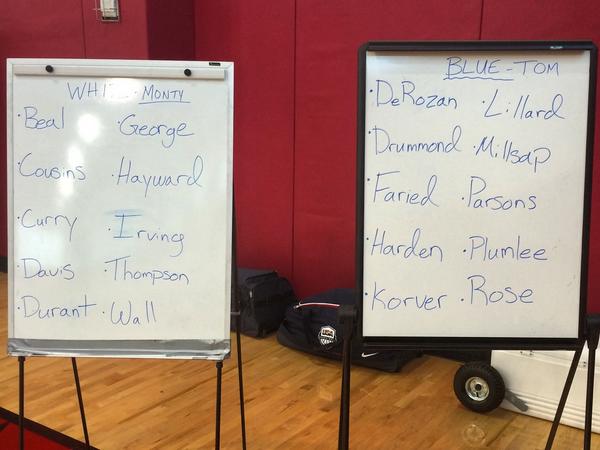 WHITE - MONTY
· Beal · George
· Cousins · Hayward
· Curry · Irving
· Davis · Thompson
· Durant · Wall
BLUE - TOM
· DeRozan · Lillard
· Drummond · Millsap
· Faried · Parsons
· Harden · Plumlee
· Korver · Rose